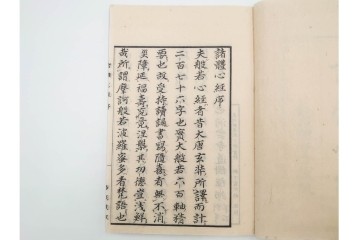 諸體心經序
夫般若心經者昔大唐玄奘所譯而計
二百七十六字也實大般若六百軸精
要也故受持讀誦書寫隨喜者無不消
罪障延福壽究竟涅槃其功德豈淺鮮
哉所謂摩訶般若波羅蜜多者梵語也